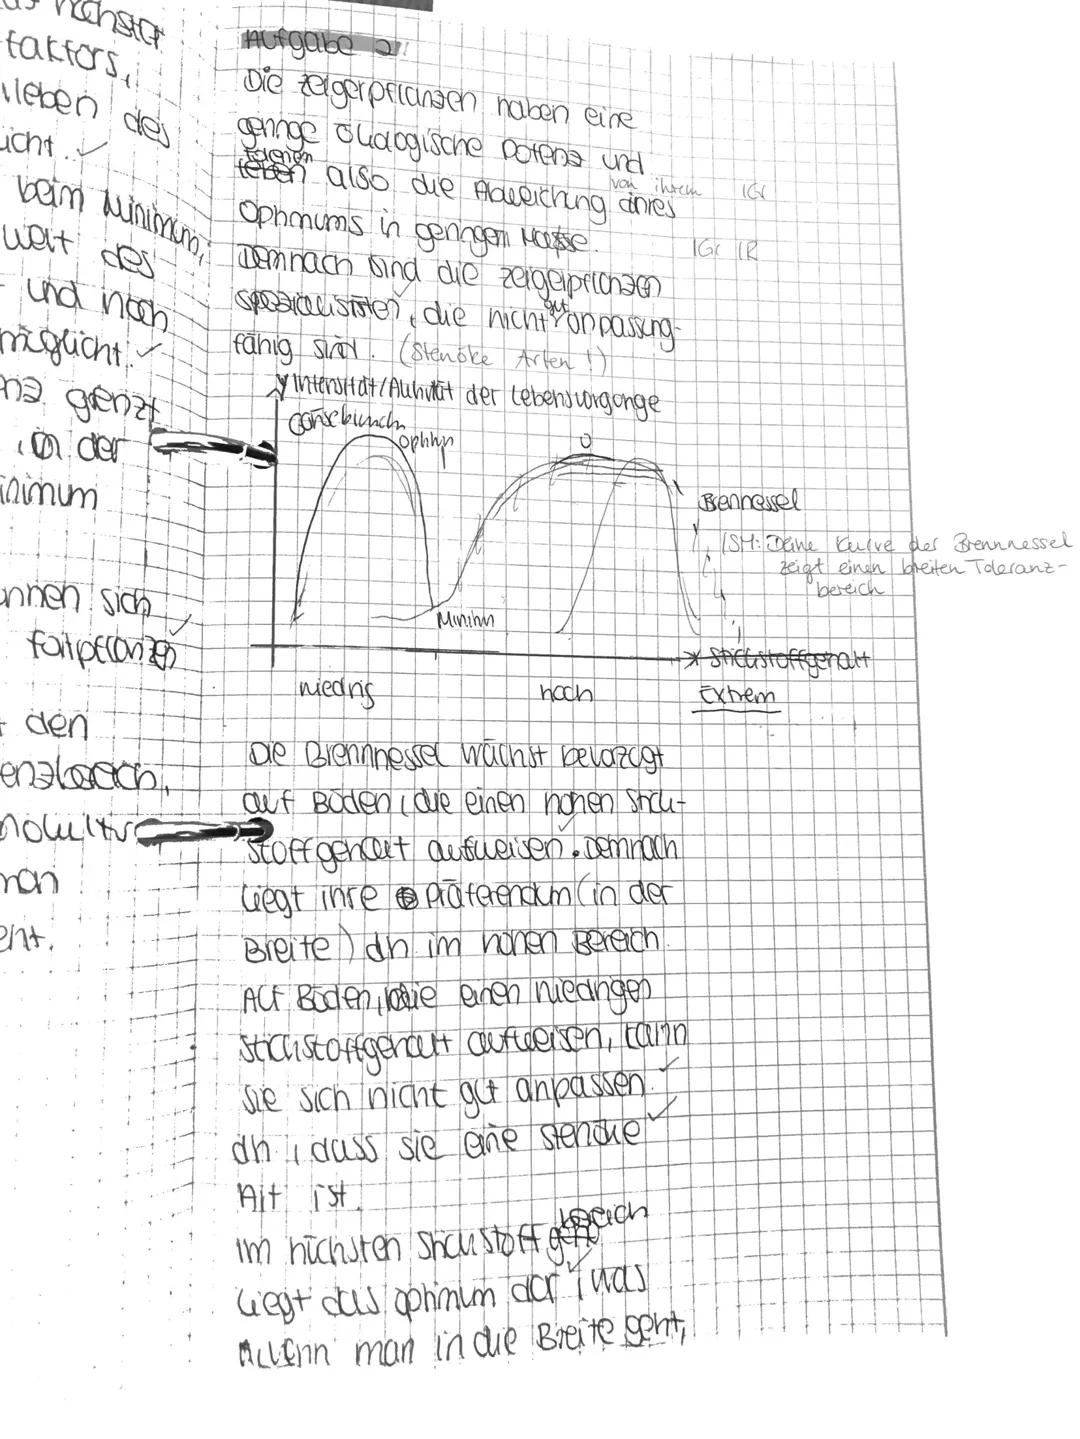 höchster
faktors,
leben des
icht. ✓
beim Minimum,
weit des
und noch
möglicht. ✓
grenzt
, in der
inimum
nnen sich
den
man
ent.
Aufgabe 2:
Die Zeigerpflanzen haben eine
geringe ökologische Potenz und
leben also die Abweichung von ihrem IGr
Optimums in geringem Maße. IGr IR
Demnach sind die Zeigerpflanzen
Spezialisten, die nicht gut anpassung-
fähig sind. (Stenöke Arten!)
y Intensität/Aktivität der Lebensvorgänge
Optimum
O
Brennessel
ISM: Deine Kurve der Brennnessel
zeigt einen breiten Toleranz-
bereich
Minimum
x Stickstoffgehalt
niedrig hoch Extrem
Die Brennnessel wächst bevorzugt
auf Böden, die einen hohen Stick-
stoffgehalt aufweisen. Demnach
liegt ihre Präferendum (in der
Breite) dh im hohen Bereich.
Auf Böden, die einen niedrigen
Stickstoffgehalt aufweisen, kann
sie sich nicht gut anpassen. ✓
dh, dass sie eine stenöke ✓
Art ist.
Im höchsten Stickstoff bereich
liegt das Optimum dar, was
wenn man in die Breite geht,